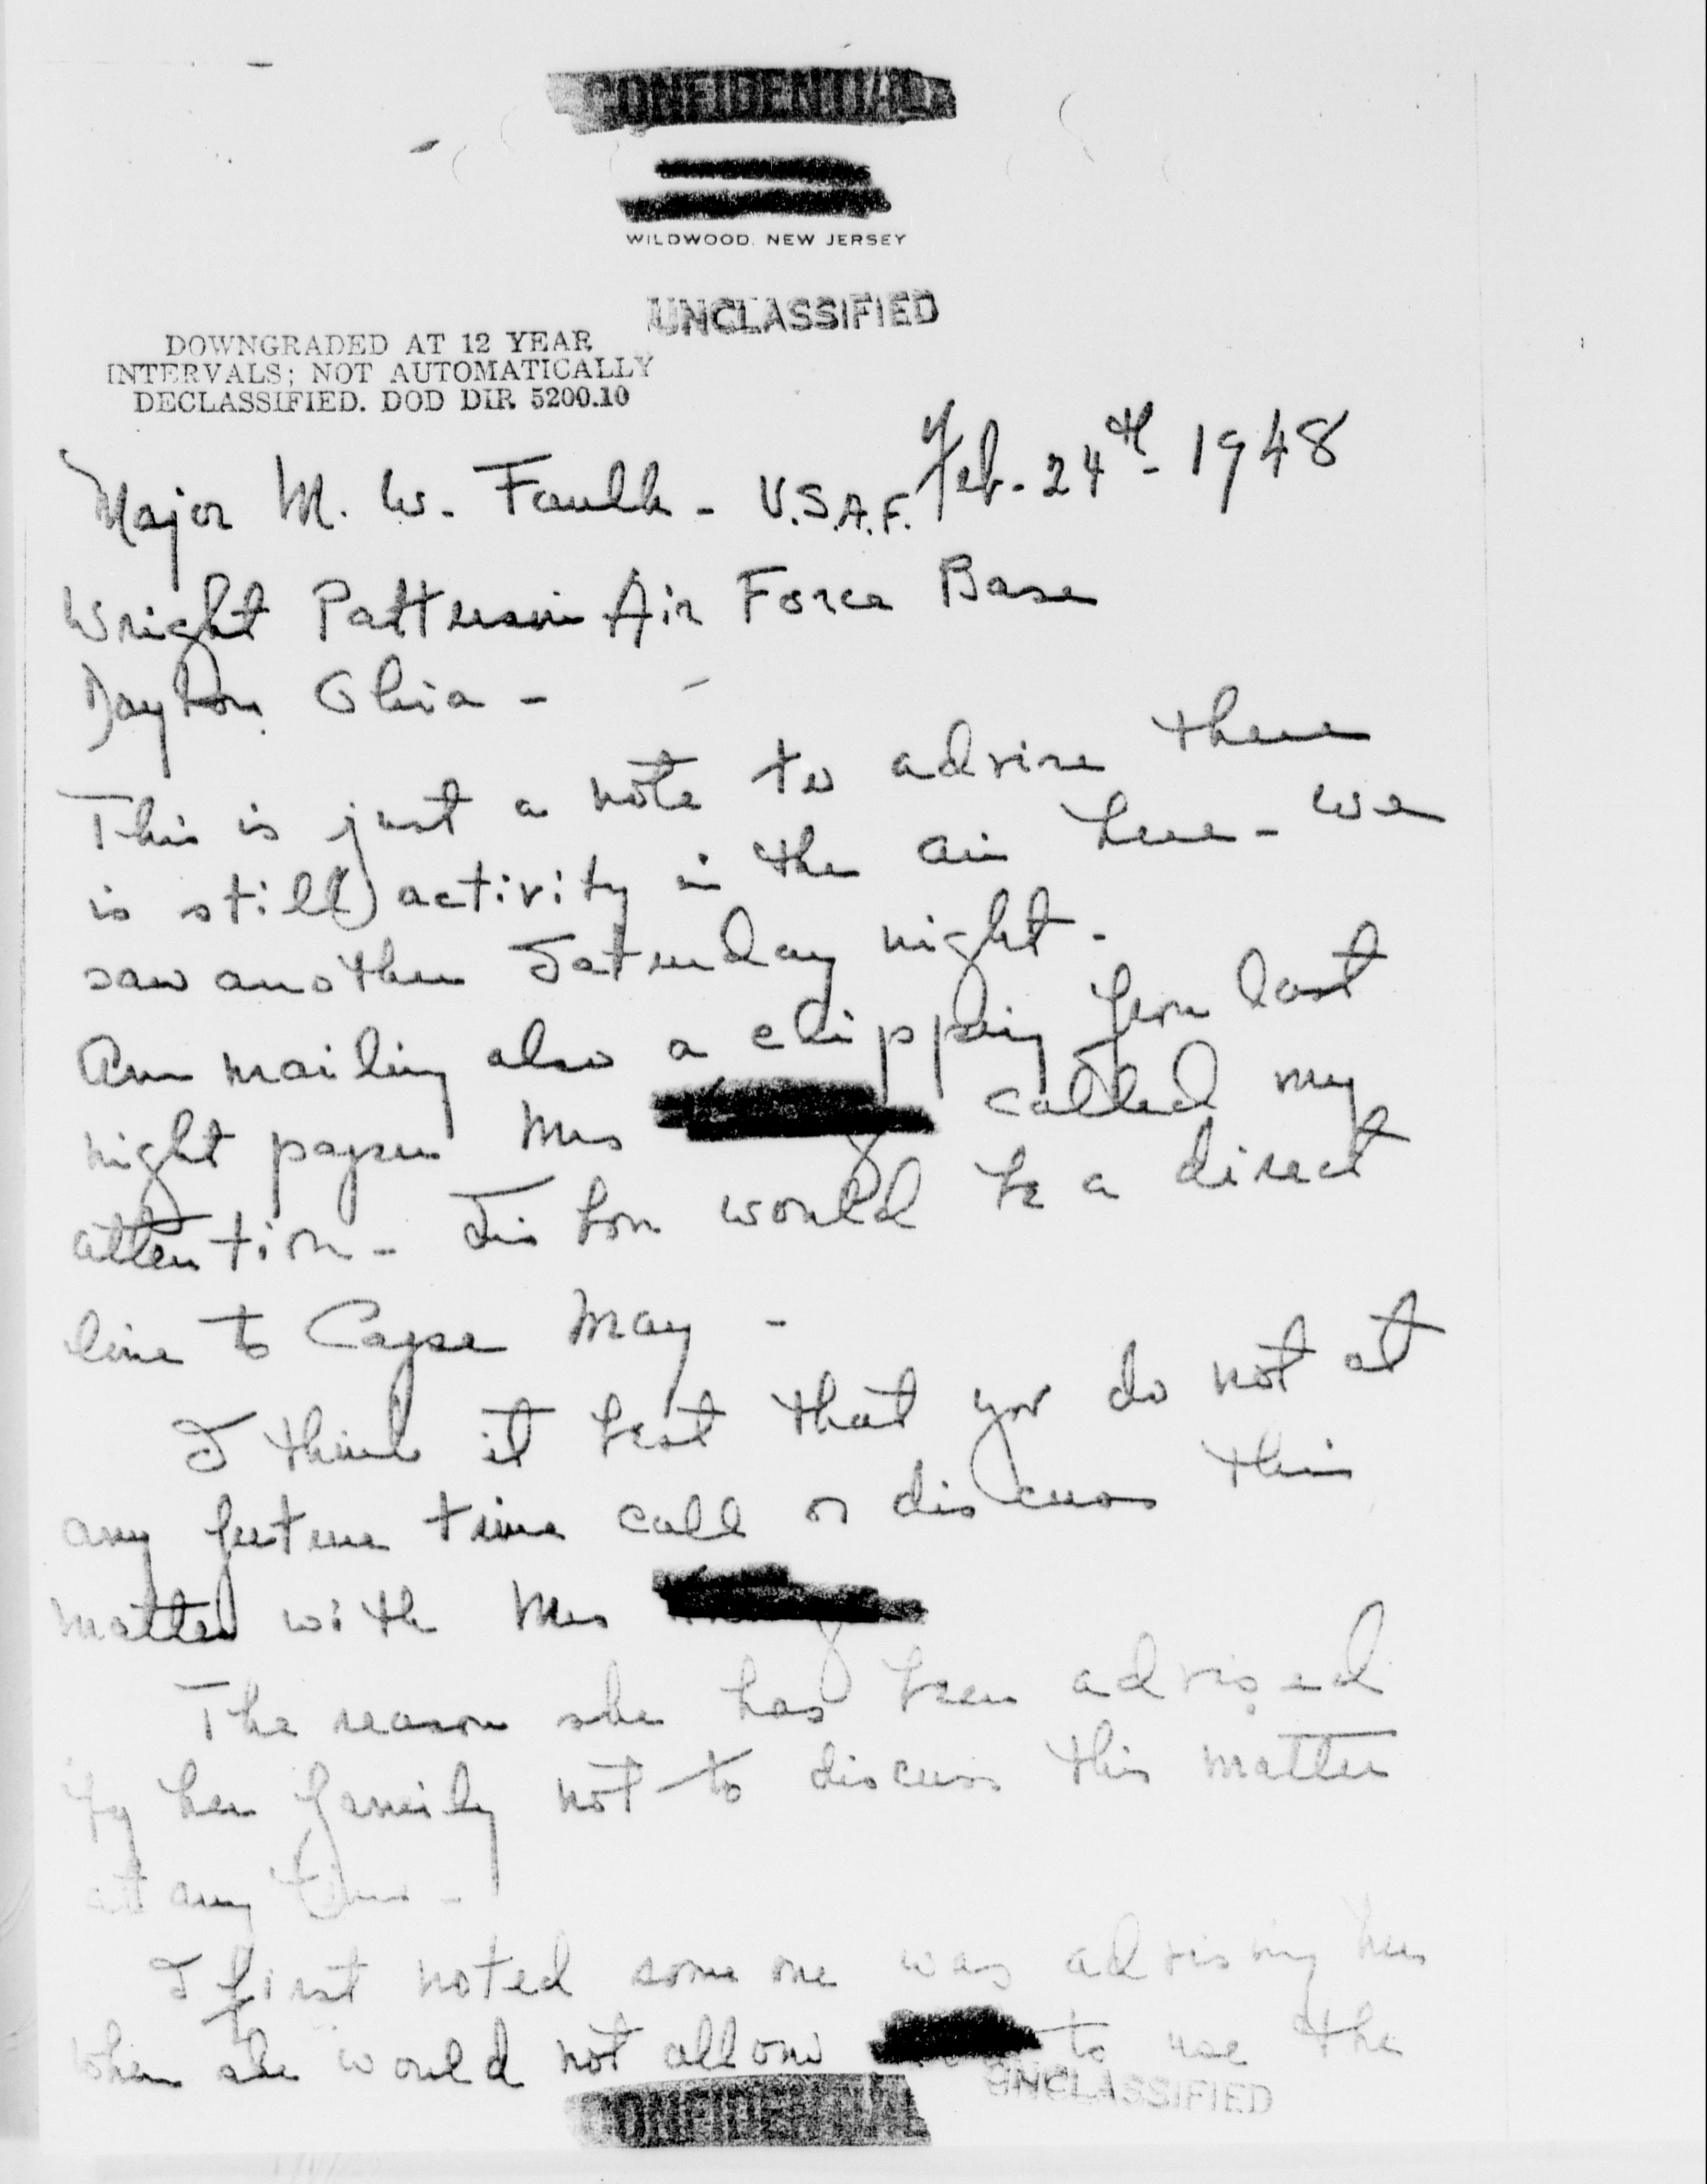 CONFIDENTIAL
WILDWOOD, NEW JERSEY
UNCLASSIFIED
DOWNGRADED AT 12 YEAR
INTERVALS; NOT AUTOMATICALLY
DECLASSIFIED. DOD DIR 5200.10
Feb. 24th - 1948
Major M. W. Faulk - U.S.A.F.
Wright Patterson Air Force Base
Dayton Ohio -
This is just a note to advise there
is still activity in the air here - we
saw another Saturday night.
Am mailing also a clipping from last
night paper Mrs called my
attention - would be a direct
line to Cape May -
I think it best that you do not at
any future time call or discuss this
matter with Mrs
The reason she has been advised
by her family not to discuss this matter
at any time -
I first noted some one was advising her
when she would not allow to use the
UNCLASSIFIED
CONFIDENTIAL